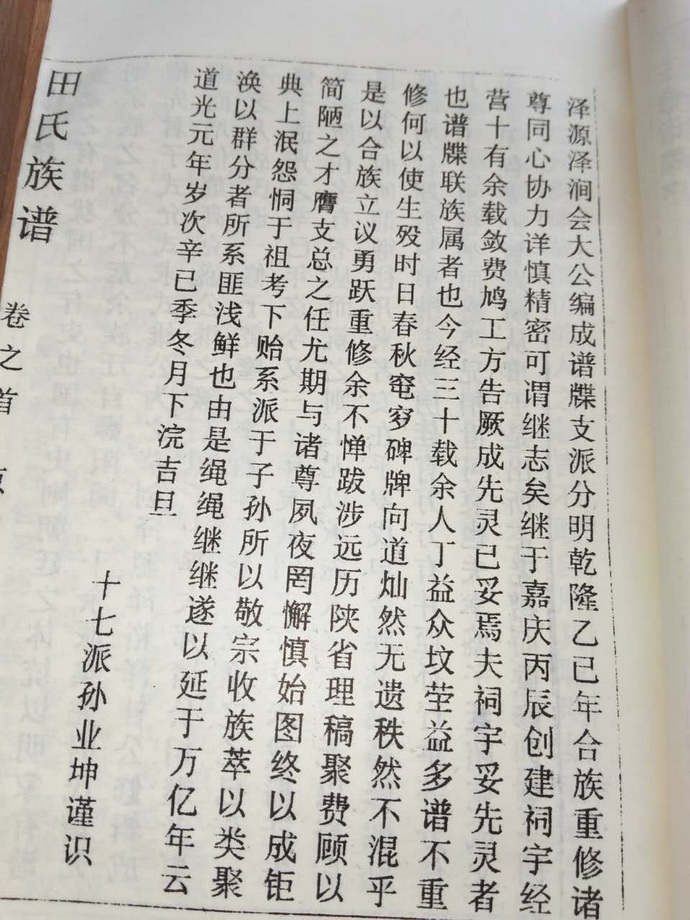 泽源泽涧会大公编成谱牒支派分明乾隆乙巳年合族重修诸
尊同心协力详慎精密可谓继志矣继于嘉庆丙辰创建祠宇经
营十有余载敛费鸠工方告厥成先灵已妥焉夫祠宇妥先灵者
也谱牒联族属者也今经三十载余人丁益众坟茔益多谱不重
修何以使生殁时日春秋窀穸碑牌向道灿然无遗秩然不混乎
是以合族立议勇跃重修余不惮跋涉远历陕省理稿聚费顾以
简陋之才膺支总之任尤期与诸尊夙夜罔懈慎始图终以成钜
典上泯怨恫于祖考下贻系派于子孙所以敬宗收族萃以类聚
涣以群分者所系匪浅鲜也由是绳绳继继遂以延于万亿年云
道光元年岁次辛巳季冬月下浣吉旦
十七派孙业坤谨识
田氏族谱
卷之首